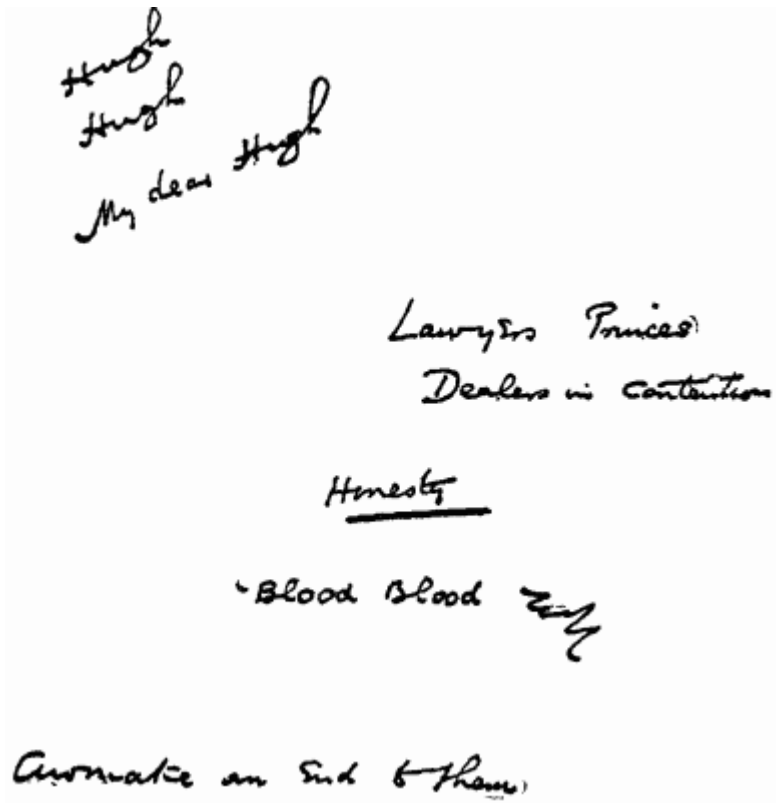 Hugh
Hugh
My dear Hugh
Lawyers Princes
Dealers in Contention
Honesty
Blood Blood
an End to them